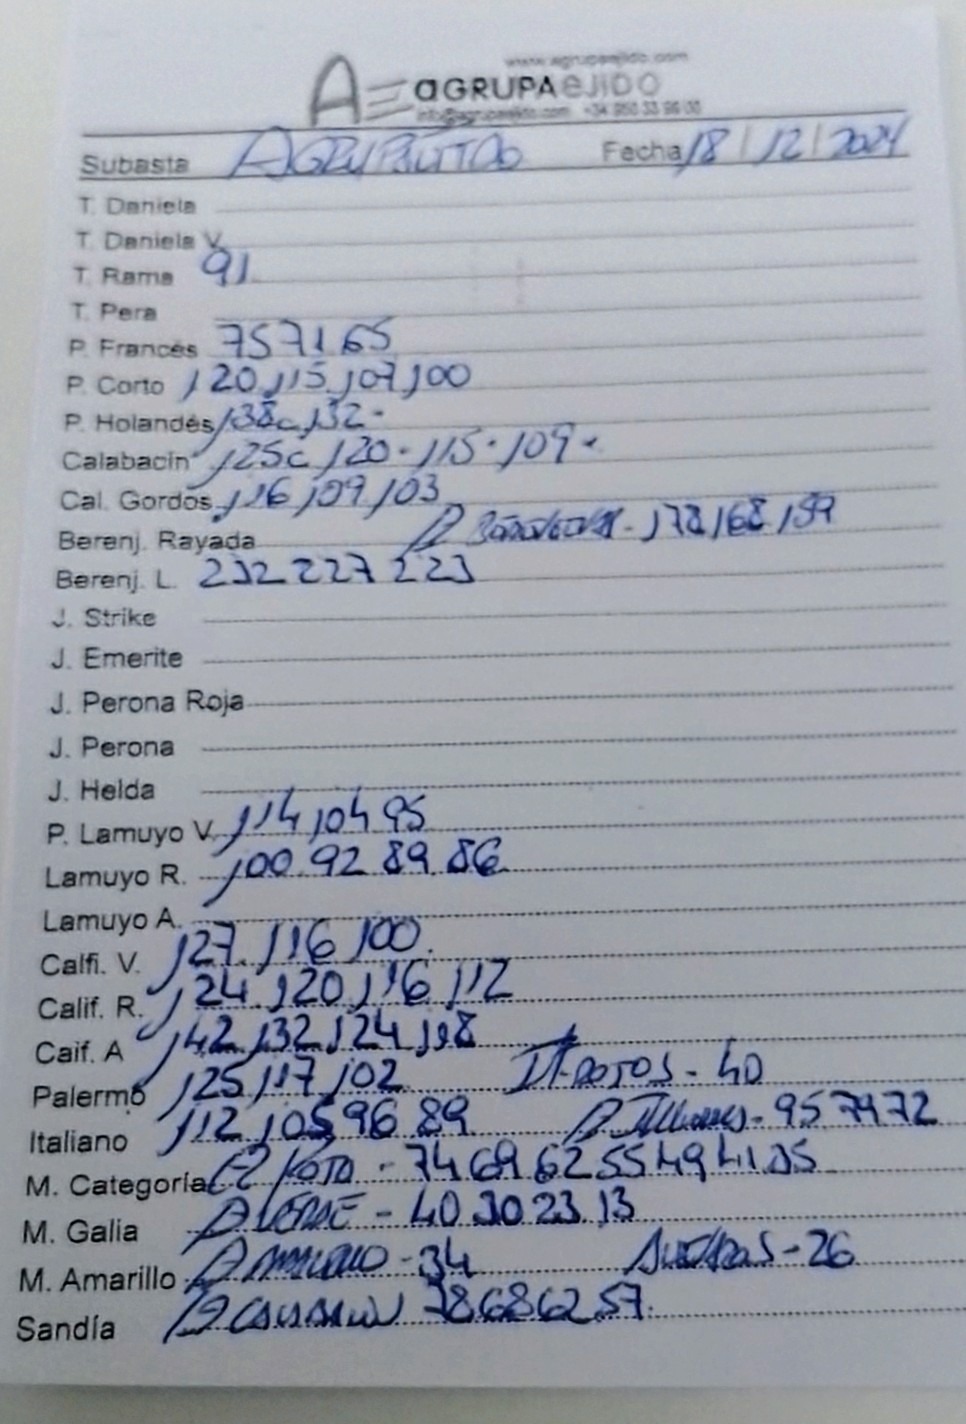 www.agrupaejido.com
AGRUPAEJIDO
info@agrupaejido.com +34 950 33 96 00
Subasta AGRUPAEJIDO Fecha 18/12/2024
T. Daniela
T. Daniela V.
T. Rama 91
T. Pera
P. Francés 75 71 65
P. Corto 120 115 107 100
P. Holandés 138c 132-
Calabacín 125c 120-115-109-
Cal. Gordos 116 109 103
Berenj. Rayada 178 168 159
Berenj. L. 232 227 223
J. Strike
J. Emerite
J. Perona Roja
J. Perona
J. Helda
P. Lamuyo V. 114 104 95
Lamuyo R. 100 92 89 86
Lamuyo A.
Calfi. V. 127 116 100
Calif. R. 124 120 116 112
Caif. A 142 132 124 118
Palermo 125 117 102 - 40
Italiano 112 105 96 89 - 95 79 72
M. Categoría - 74 69 62 55 49 41 35
M. Galia P VERDE - 40 30 23 13
M. Amarillo P AMARILLO - 34 - 26
Sandía 78 68 62 57